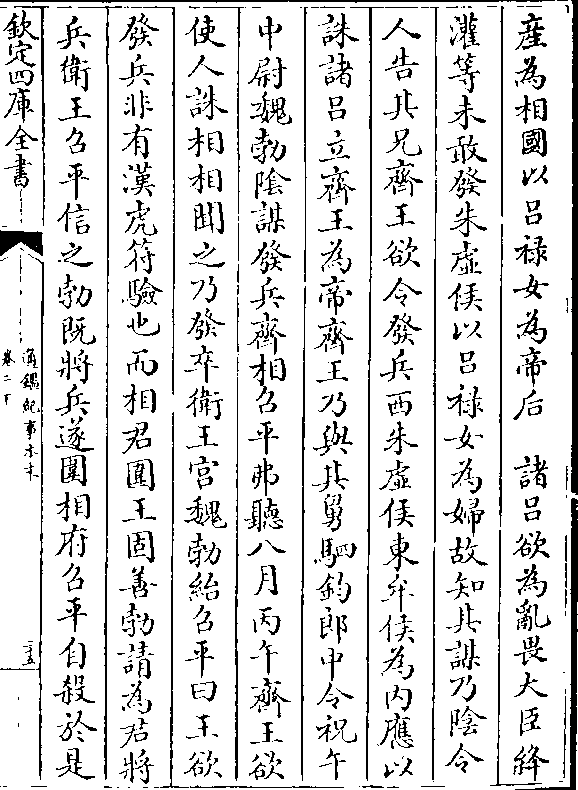 產為相國以吕禄女為帝后　諸吕欲為亂畏大臣絳
灌等未敢發朱虚侯以吕禄女為婦故知其謀乃隂令
人告其兄齊王欲令發兵西朱虚侯東牟侯為内應以
誅諸吕立齊王為帝齊王乃與其舅駟鈞郎中令祝午
中尉魏勃隂謀發兵齊相召平弗聽八月丙午齊王欲
使人誅相相聞之乃發卒衛王宫魏勃紿召平曰王欲
發兵非有漢虎符驗也而相君圍王固善勃請為君將
兵衛王召平信之勃既將兵遂圍相府召平自殺於是
欽定四庫全書
通鑑紀事本末
卷二下
二五